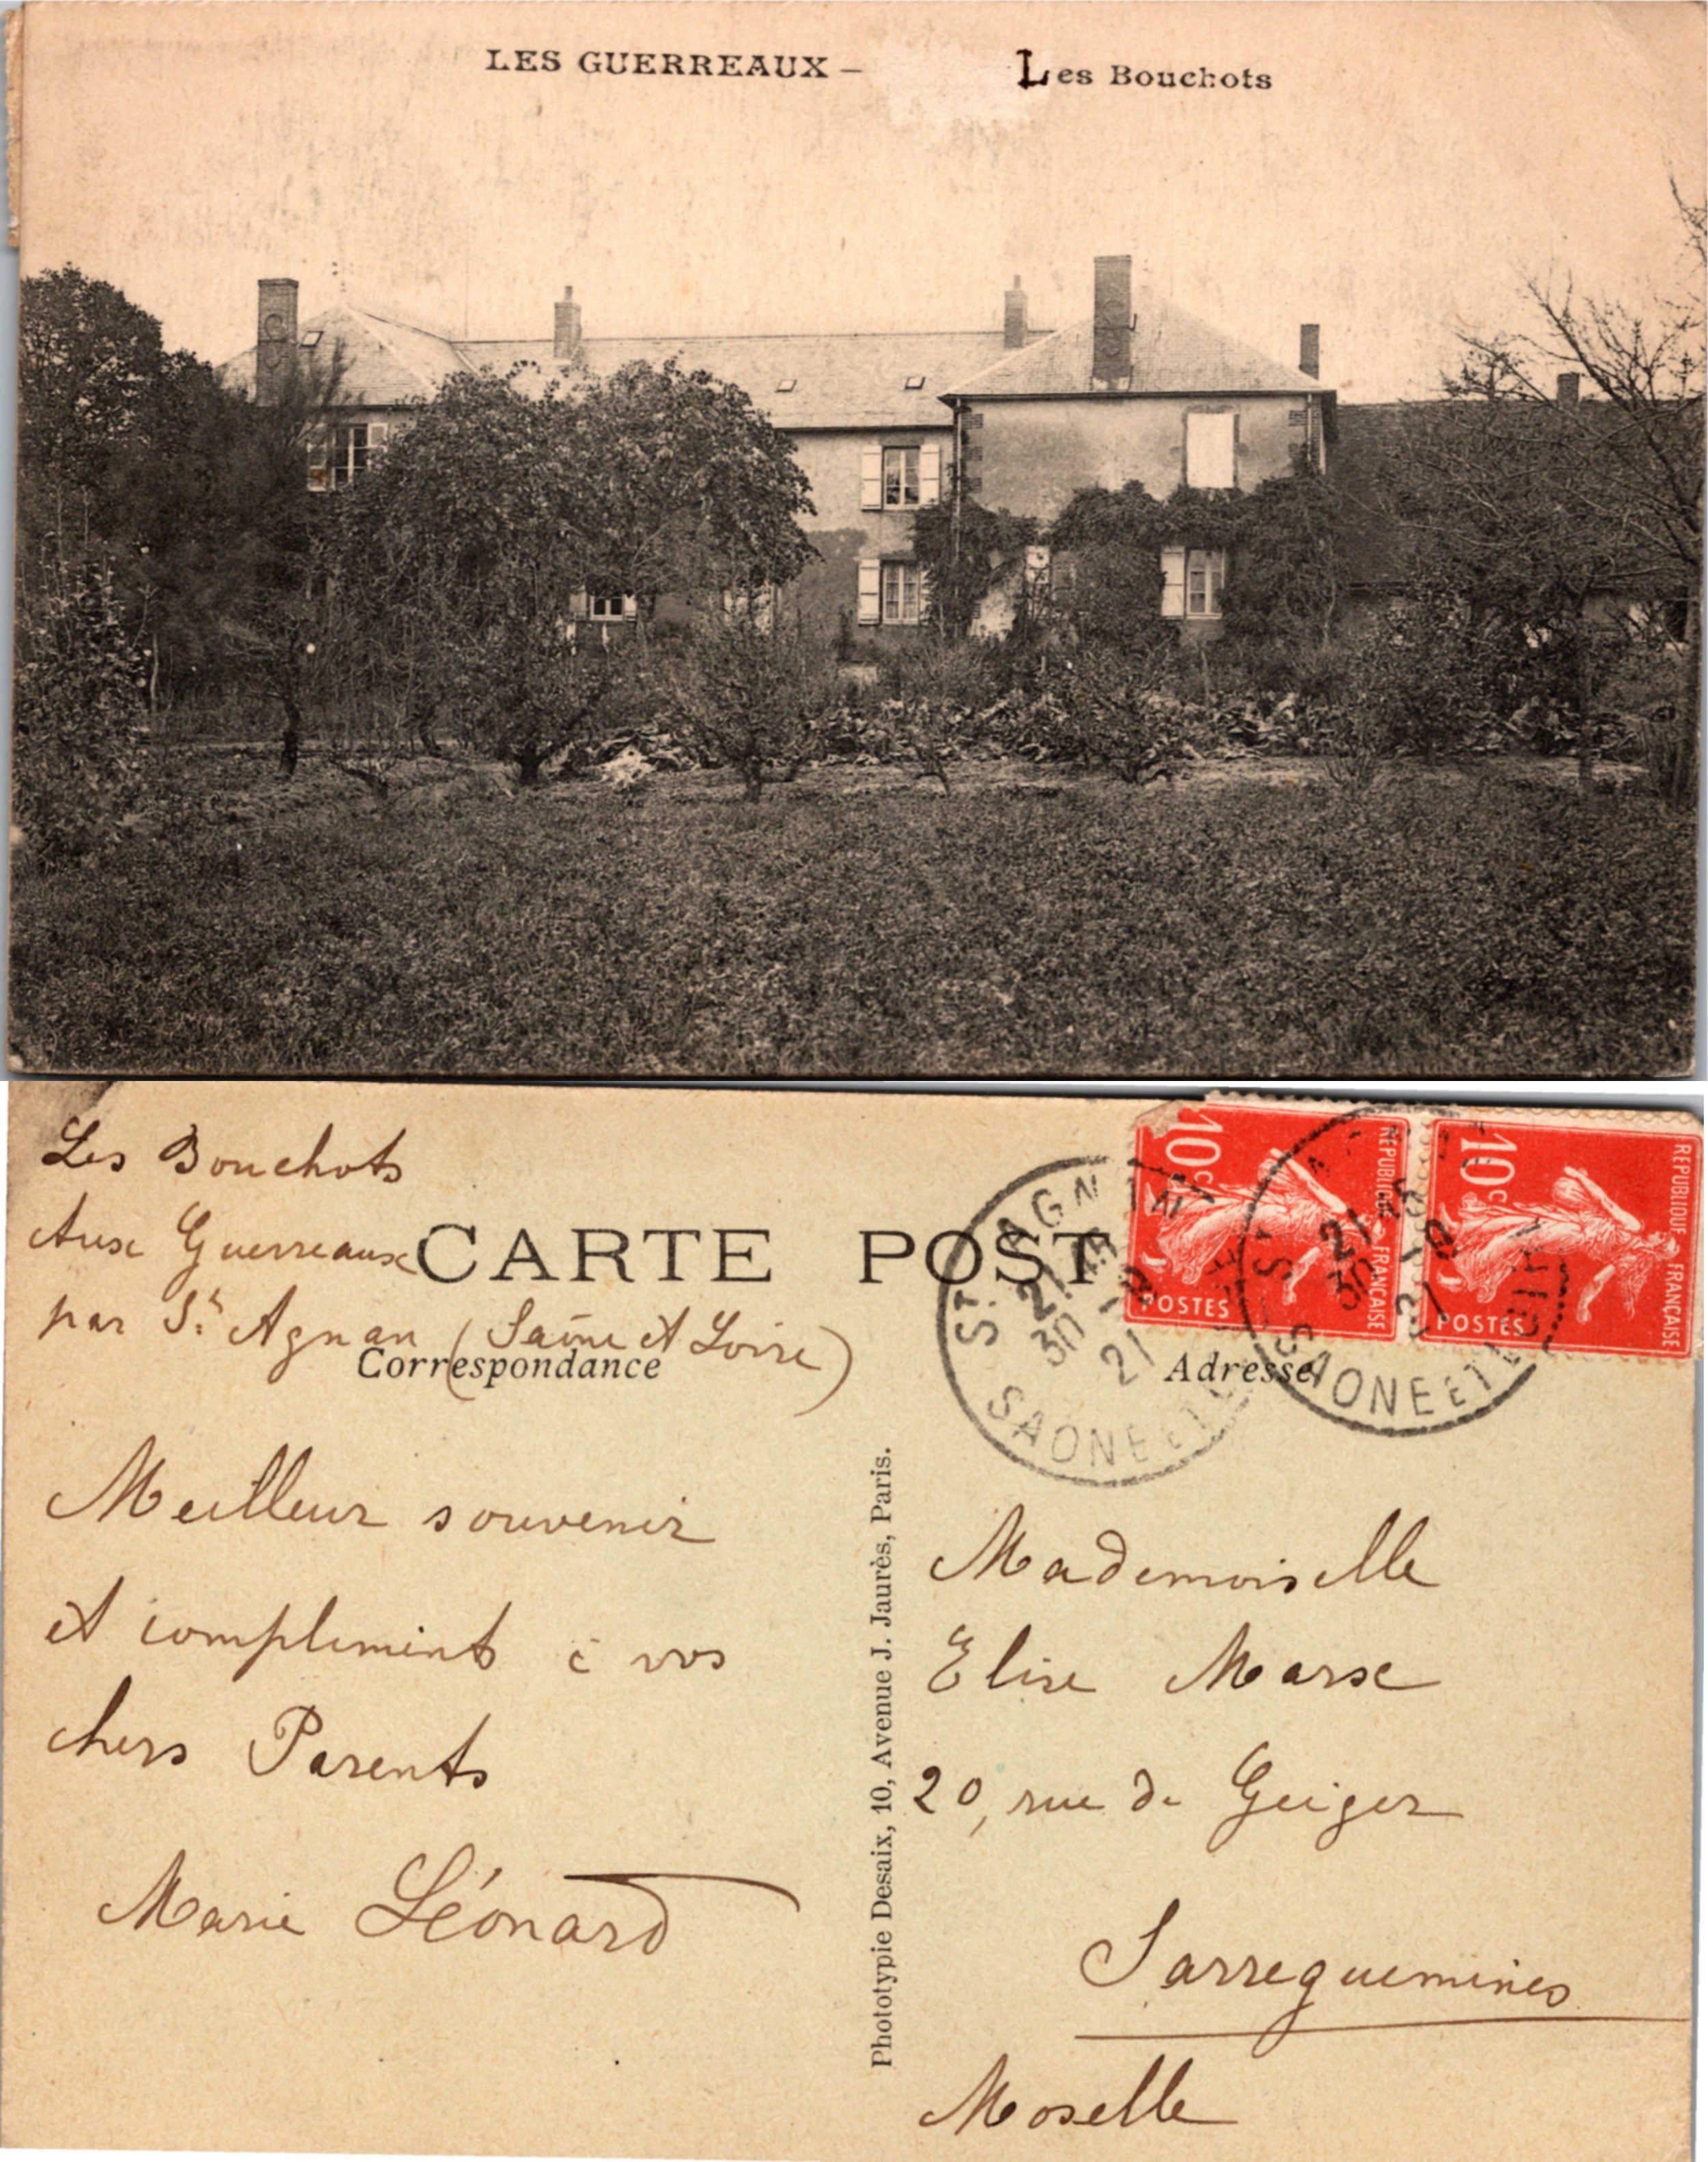 LES GUERREAUX — Les Bouchots
Les Bouchots
Aux Guerreaux
par St Agnan (Saône et Loire)
CARTE POST
Correspondance
Adresse
Meilleur souvenir
et compliments à vos
chers Parents
Marie Léonard
Phototypie Desaix, 10, Avenue J. Jaurès, Paris.
10c
REPUBLIQUE FRANÇAISE
POSTES
10c
REPUBLIQUE FRANÇAISE
POSTES
ST AGNAN
21
30 - 9
21
SAONE ET L
ST
21
30
21
SAONE ET LOIRE
Mademoiselle
Elise Marx
20, rue de Geiger
Sarreguemines
Moselle